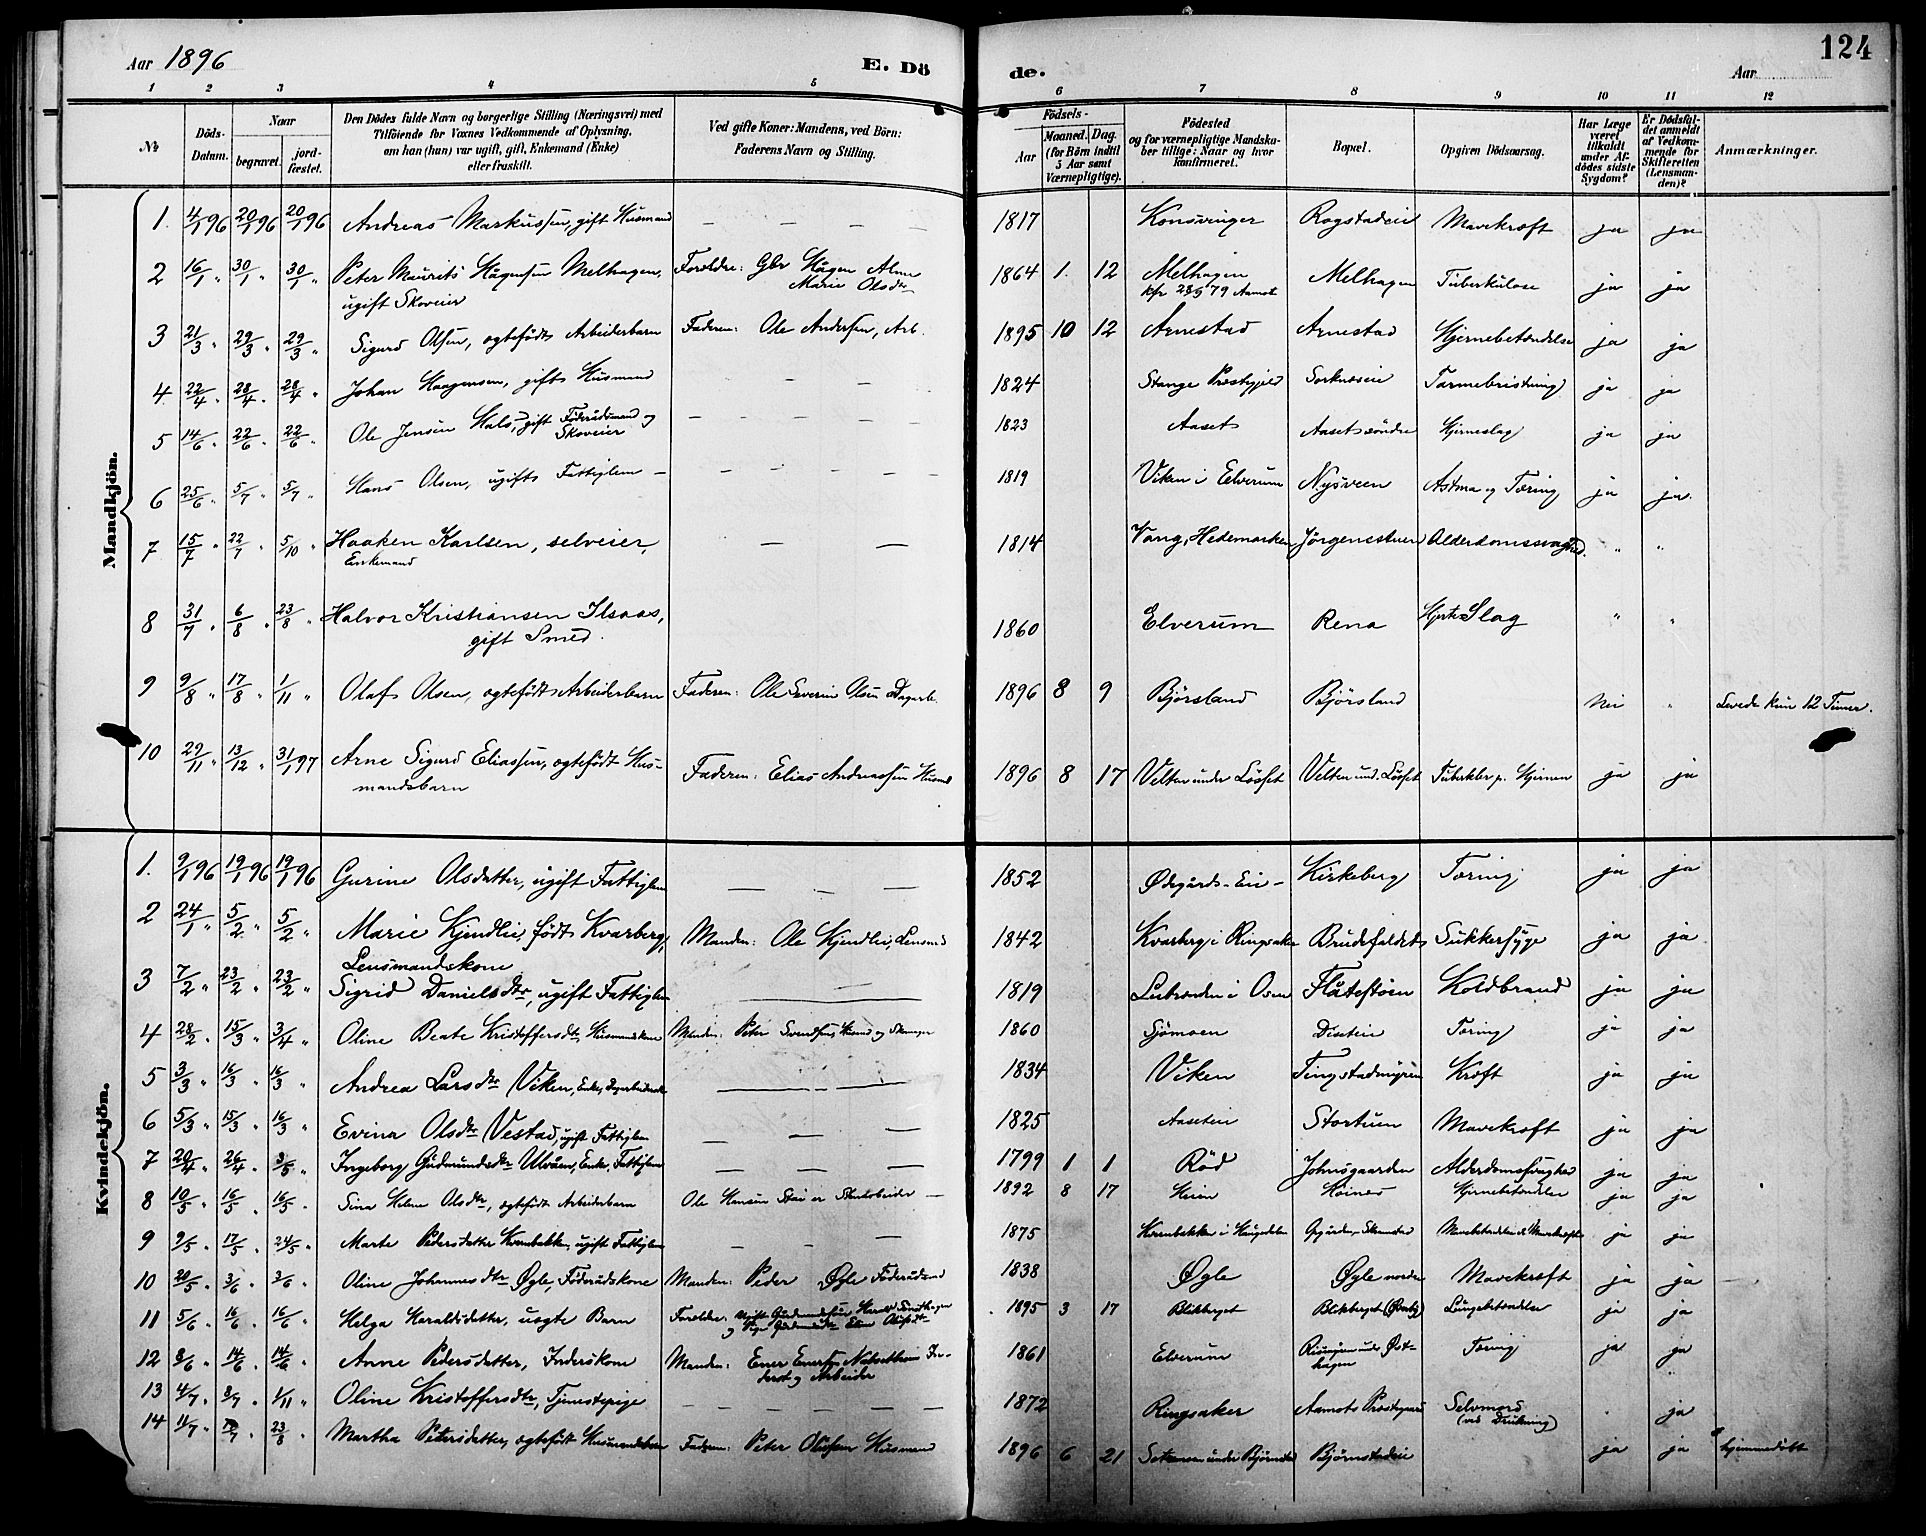 Aar 1896 E. Dö de. Aar 124
1 2 3 4 5 6 7 8 9 10 11 12
№ Döds-Datum. Naar begravet. jord-fæstet. Den Dödes fulde Navn og borgerlige Stilling (Næringsvei) med Tilföiende for Voxnes Vedkommende af Oplysning, om han (hun) var ugift, gift, Enkemand (Enke) eller fraskilt. Ved gifte Koner: Mandens, ved Börn: Faderens Navn og Stilling. Födsels- Aar Maaned. Dag. (for Börn indtil 5 Aar samt Værnepligtige). Födested og for værnepligtige Mandskaber tillige: Naar og hvor konfirmeret. Bopæl. Opgiven Dödsaarsag. Har Læge været tilkaldt under Afdödes sidste Sygdom? Er Dödsfaldet anmeldt af Vedkommende for Skifteretten (Lensmanden)? Anmærkninger.
Mandkjön.
1. 4/1 96 20/1 96 20/1 96 Andreas Markussen, gift Husmand — — — — 1817 Konsvinger Rogstadeie Mavekræft ja ja
2 16/1 " 30/1 " 30/1 " Peter Mauritz Hågensen Melhagen, Forældre: Gbr Hågen Alme 1864 1. 12 Melhagen Melhagen Tuberkulose ja ja
ugift Skoveier Marie Olsdtr kfr 28/9 79 Aamot
3 21/3 " 29/3 " 29/3 " Sigurd Olsen, ægtefødt Arbeiderbarn Faderen: Ole Andersen, Arb. 1895 10 12 Arnestad Arnestad Hjernebetændelse ja ja
4 22/4 " 28/4 " 28/4 " Johan Haagensen, gift Husmand — — 1824 Stange Præstegjeld Sorknæseie Tarmebristning ja ja
5 14/6 " 22/6 " 22/6 " Ole Jensen Hals, gift Föderaadsmand og Skoveier — — — — 1823 Aaset Aaset søndre Hjerneslag ja ja
6 25/6 " 5/7 " 5/7 " Hans Olsen, ugift Fattiglem — — — — — 1819 Viken i Elverum Nysveen Astma og Tæring ja ja.
7 15/7 " 22/7 " 5/10 " Haaken Karlsen, selveier, — — 1814 Vang, Hedemarken Jörgenstuen Alderdomssvaghed. " "
Enkemand
8 31/7 " 6/8 " 23/8 " Halvor Kristiansen Ilsaas, 1860 Elverum Rena Hjerte Slag " "
gift Smed.
9 9/8 " 17/8 " 1/11 " Olaf Olsen, ægtefødt Arbeiderbarn Faderen: Ole Severin Olsen Dagarb. 1896 8 9 Björsland Björsland Nei " Levede kun 12 Timer.
10 29/11 " 13/12 " 31/1 97 Arne Sigurd Eliassen, ægtefødt Hus- Faderen: Elias Andreassen Husmd 1896 8 17 Velten under Löset Velten und. Löset Tuberkler p. Hjernen ja ja
mandsbarn
Kvindekjön.
1. 9/1 96 19/1 96 19/1 96 Gurine Olsdatter, ugift Fattiglem — — — 1852 Ødegårds-Eie – Kirkeberg Tæring ja ja
2 24/1 " 5/2 " 5/2 " Marie Kjendlie, født Kvarberg, Manden: Ole Kjendlie, Lensmd 1842 Kvarberg i Ringsaker Brudefaldet Sukkersyge ja ja
Lensmandskone
3 7/2 " 23/2 " 23/2 " Sigrid Danielsdtr, ugift Fattiglem — — — 1819 i Osen Flåtestöen Koldbrand ja ja
4 28/2 " 15/3 " 3/4 " Oline Beate Kristoffersdtr, Husmandskone Manden: Peter Svendsen, Husmd og 1860 Sjömoen Diseteie Tæring ja ja
5 3/3 " 16/3 " 16/3 " Andrea Larsdtr Viken, Enke, Dagarbeiderske — — — 1834 Viken Tingstadmyren Kræft ja ja
6 5/3 " 15/3 " 16/3 " Evina Olsdtr Vestad, ugift Fattiglem — — — 1825 Aaseteie Stortuen Mavekræft ja ja
7 20/4 " 26/4 " 3/5 " Ingeborg Gudmundsdtr Ulvåen, Enke, Fattiglem — — — 1799 1 1 Röd Johnsgaarden Alderdomssvaghed ja ja
8 10/5 " 16/5 " 16/5 " Sina Helene Olsdtr, ægtefødt Arbeiderbarn Ole Hansen — 1892 8 17 Koines Hjernebetændelse ja ja
9 9/5 " 17/5 " 24/5 " Marte Pedersdatter Kvernbakken, ugift Fattiglem — — — 1875 Kvernbakken i Haugedalen ja ja
10 20/5 " 3/6 " 3/6 " Oline Johannesdtr Øgle, Föderådskone Manden: Peder Øgle Föderådsmd 1838 Øgle Øgle nordre Mavekræft ja ja
11 5/6 " 16/6 " 16/6 " Helga Haraldsdatter, uægte Barn Forældre: 1895 3 17 Blikberget Blikberget Lungebetændelse ja ja
12 8/6 " 14/6 " 14/6 " Anne Pedersdatter, Inderskone Manden: Ener Enersen In- 1861 Elverum Tæring ja ja
derst og Arbeider
13 4/7 " 8/7 " 1/11 " Oline Kristoffersdtr, Tjenestepige — — — — — 1872 Ringsaker Aamots Præstegaard Selvmord ja
(ved Drukning)
14 11/7 " 23/8 " Martha Petersdatter, ægtefødt Husmandsbarn Faderen: Peter Olufsen Husmand 1896 6 21 under Björnstad Björnstadeie ja ja hjemmedöbt